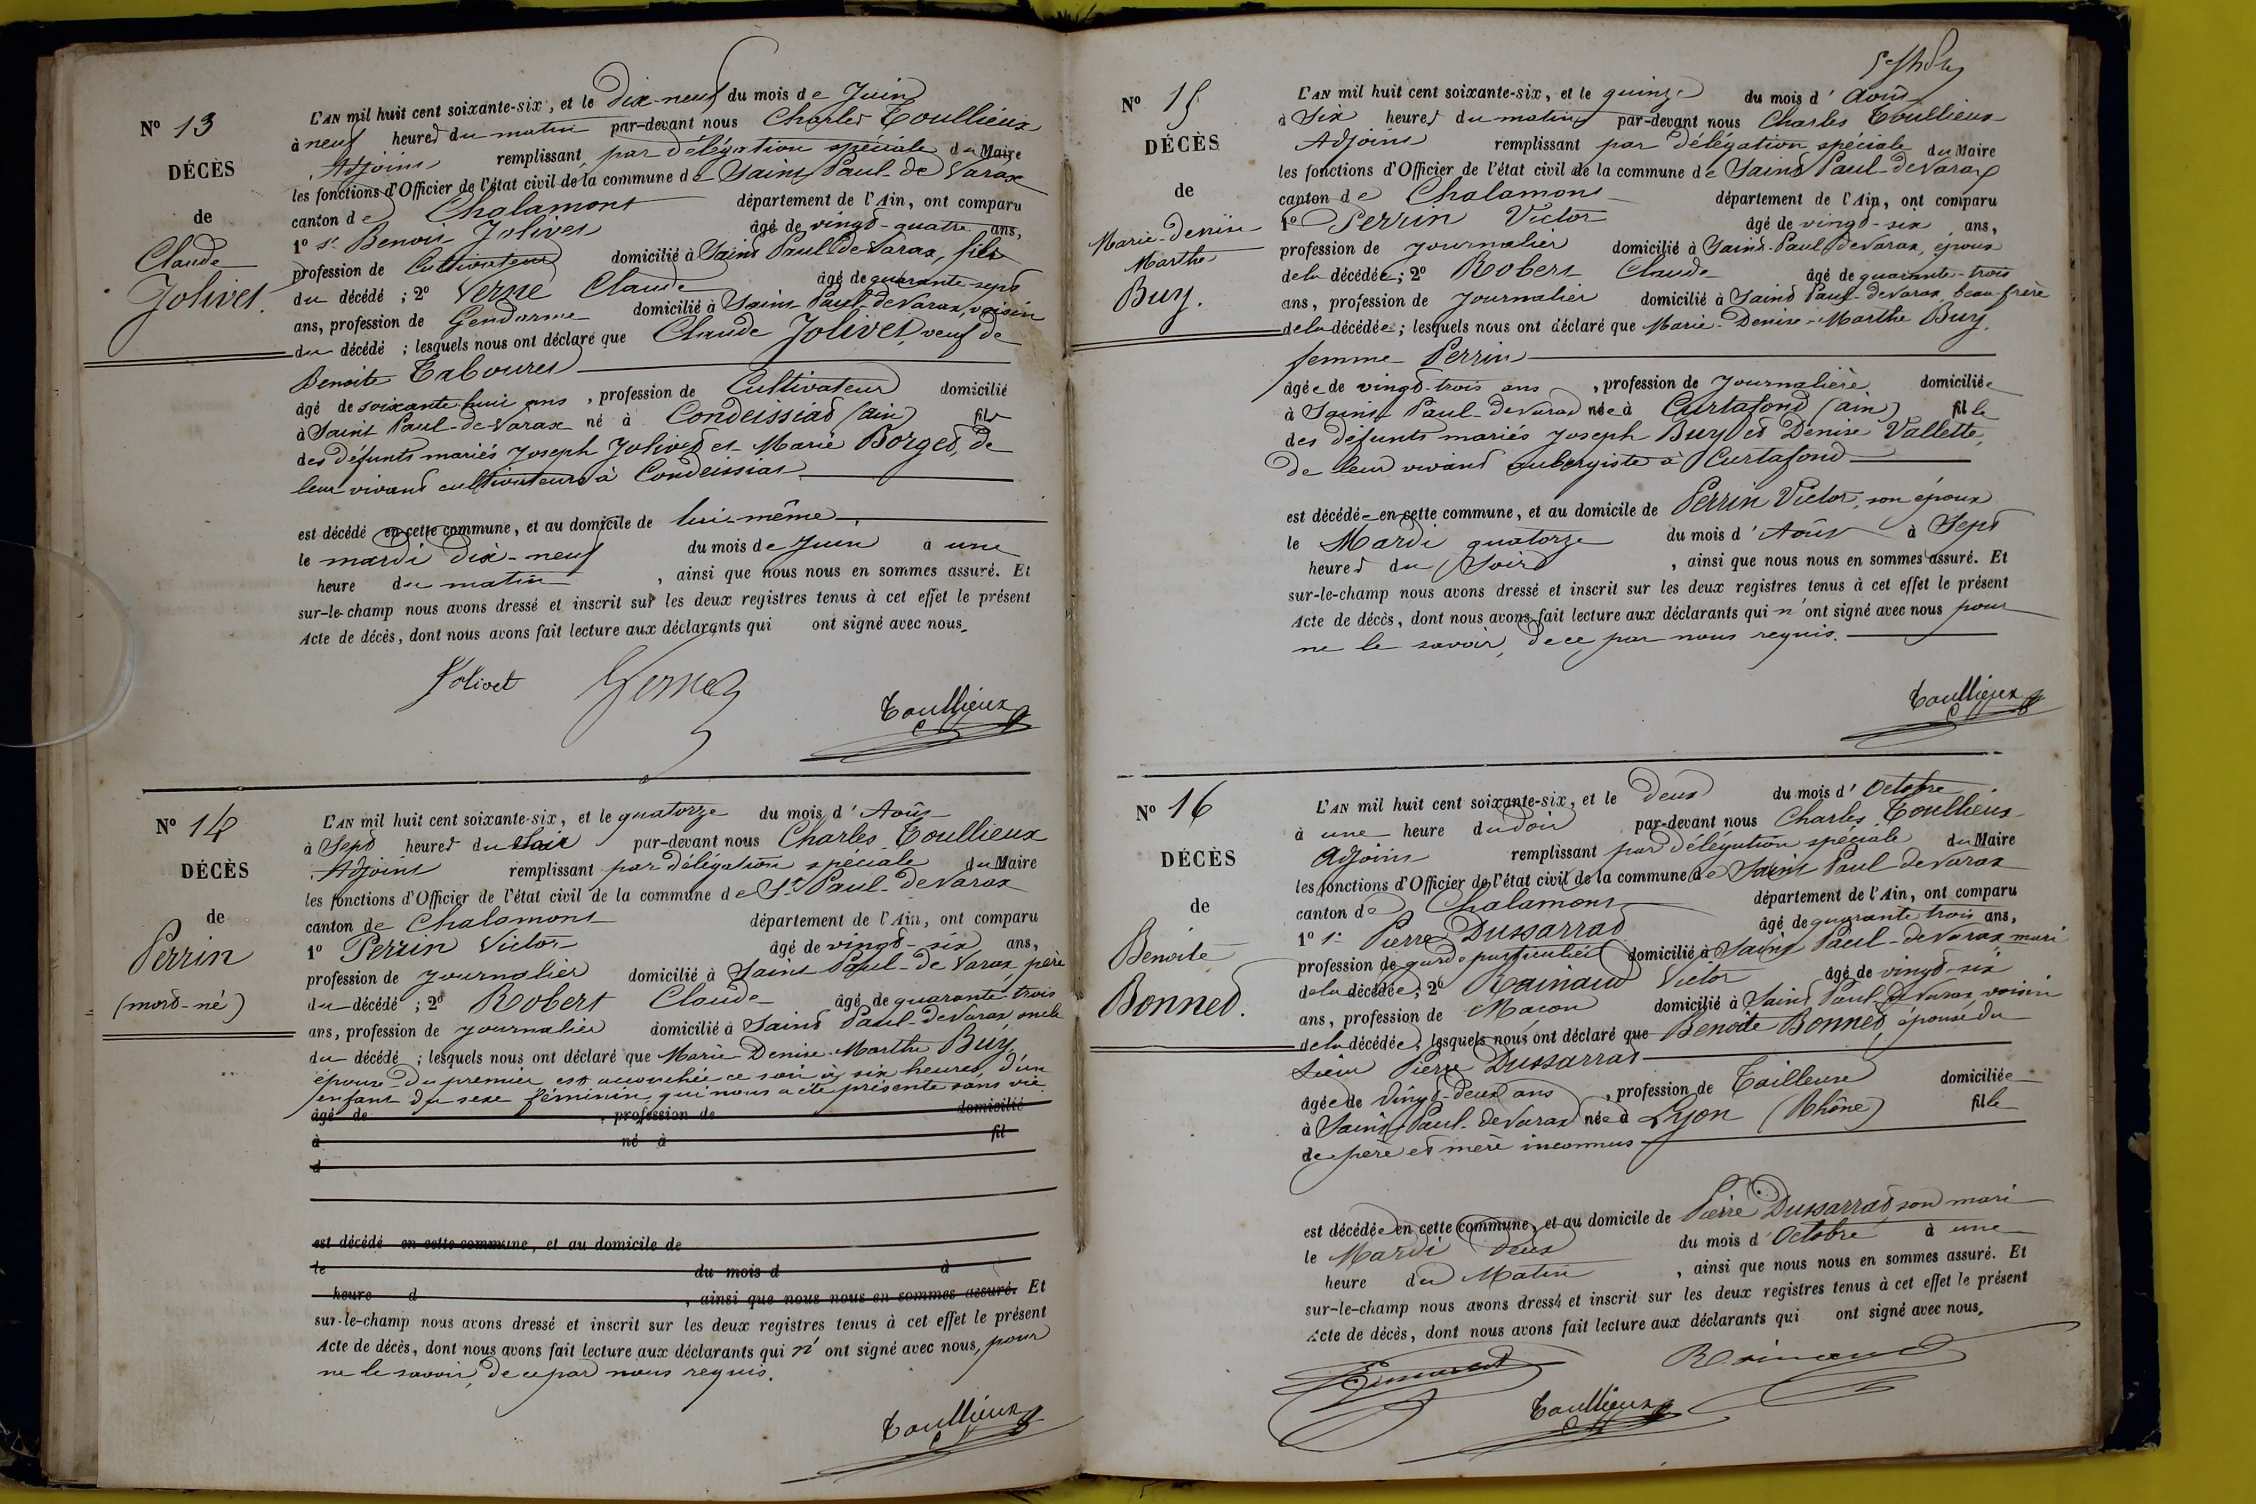 N° 13
DÉCÈS
de
Claude
Jolivet.
L'AN mil huit cent soixante-six, et le Dix-neuf du mois de Juin
à neuf heures du matin par-devant nous Charles Toullieux
Adjoint remplissant par délégation spéciale du Maire
les fonctions d'Officier de l'état civil de la commune de Saint Paul-de Varax
canton de Chalamont département de l'Ain, ont comparu
1° sr. Benoit Jolivet âgé de vingt-quatre ans,
profession de Cultivateur domicilié à Saint Paul de Varax, fils
du décédé ; 2° Verne Claude âgé de quarante-sept
ans, profession de Gendarme domicilié à Saint Paul de Varax, voisin
du décédé ; lesquels nous ont déclaré que Claude Jolivet, veuf de
Benoite Tabouret
âgé de soixante huit ans, profession de Cultivateur domicilié
à Saint Paul-de-Varax né à Condeissiat (ain) fils
des défunts mariés Joseph Jolivet et Marie Borget, de
leur vivant cultivateurs à Condeissiat
est décédé en cette commune, et au domicile de lui-même
le mardi dix-neuf du mois de Juin à une
heure du matin, ainsi que nous nous en sommes assuré. Et
sur-le-champ nous avons dressé et inscrit sur les deux registres tenus à cet effet le présent
Acte de décès, dont nous avons fait lecture aux déclarants qui ont signé avec nous.
Jolivet Toullieux
N° 14
DÉCÈS
de
Perrin
(mort-né)
L'AN mil huit cent soixante-six, et le quatorze du mois d'Août
à Sept heures du Soir par-devant nous Charles Toullieux
Adjoint remplissant par délégation spéciale du Maire
les fonctions d'Officier de l'état civil de la commune de St Paul-de Varax
canton de Chalamont département de l'Ain, ont comparu
1° Perrin Victor âgé de vingt-six ans,
profession de journalier domicilié à Saint Paul-de Varax, père
du décédé ; 2° Robert Claude âgé de quarante trois
ans, profession de journalier domicilié à Saint Paul-de Varax, oncle
du décédé ; lesquels nous ont déclaré que Marie Denise Marthe Buy,
épouse du premier est accouchée ce soir à six heures, d'un
enfant du sexe féminin, qui nous a été présenté sans vie
âgé de , profession de domicilié
à né à fil
d
est décédé en cette commune, et au domicile de
le du mois d à
heure d , ainsi que nous nous en sommes assuré. Et
sur-le-champ nous avons dressé et inscrit sur les deux registres tenus à cet effet le présent
Acte de décès, dont nous avons fait lecture aux déclarants qui n'ont signé avec nous, pour
ne le savoir, de ce par nous requis.
Toullieux
N° 15
DÉCÈS
de
Marie-Denise
Marthe
Buy.
L'AN mil huit cent soixante-six, et le quinze du mois d'Août
à Six heures du matin par-devant nous Charles Toullieux
Adjoint remplissant par délégation spéciale du Maire
les fonctions d'Officier de l'état civil de la commune de Saint Paul-de Varax
canton de Chalamont département de l'Ain, ont comparu
1° Perrin Victor âgé de vingt-six ans,
profession de journalier domicilié à Saint-Paul de Varax, époux
de la décédée ; 2° Robert Claude âgé de quarante-trois
ans, profession de journalier domicilié à Saint Paul-de Varax, beau-frère
de la décédée ; lesquels nous ont déclaré que Marie-Denise-Marthe Buy,
femme Perrin
âgée de vingt-trois ans, profession de journalière domiciliée
à Saint Paul-de Varax née à Curtafond (ain) fille
des défunts mariés Joseph Buy et Denise Vallette,
de leur vivant aubergiste à Curtafond
est décédée en cette commune, et au domicile de Perrin Victor, son époux
le Mardi quatorze du mois d'Août à Sept
heures du Soir, ainsi que nous nous en sommes assuré. Et
sur-le-champ nous avons dressé et inscrit sur les deux registres tenus à cet effet le présent
Acte de décès, dont nous avons fait lecture aux déclarants qui n'ont signé avec nous pour
ne le savoir, de ce par nous requis.
Toullieux
N° 16
DÉCÈS
de
Benoite
Bonnet.
L'AN mil huit cent soixante-six, et le deux du mois d'Octobre
à une heure du Soir par-devant nous Charles Toullieux
Adjoint remplissant par délégation spéciale du Maire
les fonctions d'Officier de l'état civil de la commune de Saint Paul de Varax
canton de Chalamont département de l'Ain, ont comparu
1° sr. Pierre Dussarrat âgé de quarante trois ans,
profession de garde particulier domicilié à Saint Paul-de Varax, mari
de la décédée ; 2° Rainaud Victor âgé de vingt-six
ans, profession de Macon domicilié à Saint Paul de Varax, voisin
de la décédée ; lesquels nous ont déclaré que Benoite Bonnet, épouse du
sieur Pierre Dussarrat
âgée de vingt-deux ans, profession de Tailleuse domiciliée
à Saint Paul-de Varax née à Lyon (Rhône) fille
de père et mère inconnus
est décédée en cette commune, et au domicile de Pierre Dussarrat son mari
le Mardi deux du mois d'Octobre à une
heure du Matin, ainsi que nous nous en sommes assuré. Et
sur-le-champ nous avons dressé et inscrit sur les deux registres tenus à cet effet le présent
Acte de décès, dont nous avons fait lecture aux déclarants qui ont signé avec nous.
Rainaud
Toullieux